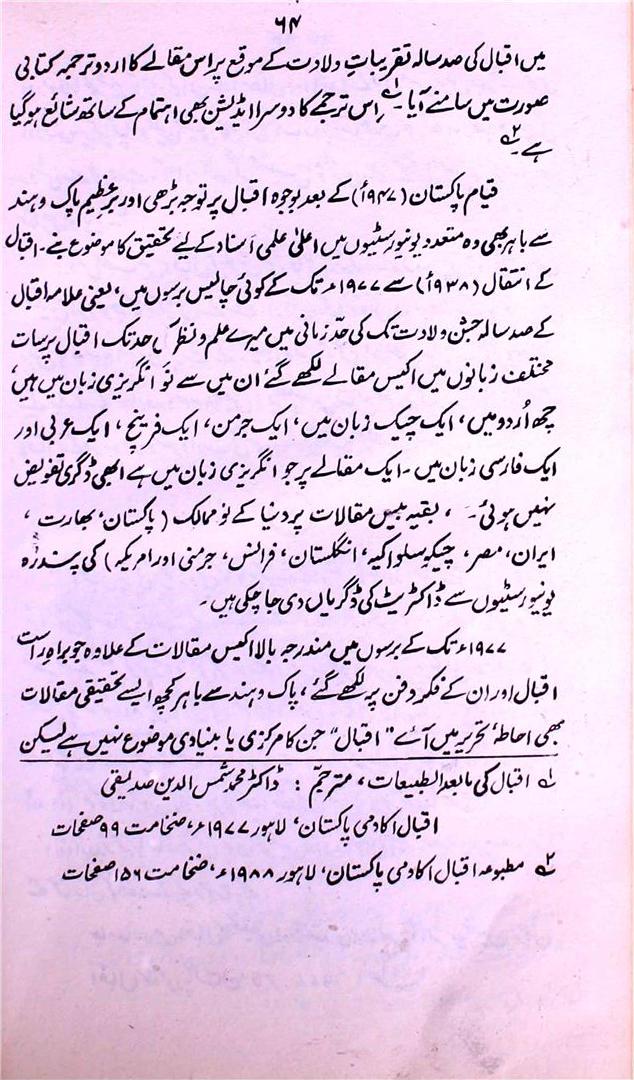 ۶۴
میں اقبال کی صد سالہ تقریباتِ ولادت کے موقع پر اس مقالے کا اردو ترجمہ کتابی
صورت میں سامنے آیا۔ ۱؎ اس ترجمے کا دوسرا ایڈیشن بھی اہتمام کے ساتھ شائع ہو گیا
ہے۔ ۲؎
قیام پاکستان (۱۹۴۷ء) کے بعد بوجوہ اقبال پر توجہ بڑھی اور برعظیم پاک و ہند
سے باہر بھی وہ متعدد یونیورسٹیوں میں اعلیٰ علمی اسناد کے لیے تحقیق کا موضوع بنے۔ اقبال
کے انتقال (۱۹۳۸ء) سے ۱۹۷۷ء تک کے کوئی چالیس برسوں میں، یعنی علامہ اقبال
کے صد سالہ جشن ولادت تک کی حدّ زمانی میں میرے علم و نظر کی حد تک اقبال پر سات
مختلف زبانوں میں اکیس مقالے لکھے گئے ان میں سے نو انگریزی زبان میں ہیں،
چھ اُردو میں، ایک چیک زبان میں، ایک جرمن، ایک فرینچ، ایک عربی اور
ایک فارسی زبان میں۔ ایک مقالے پر جو انگریزی زبان میں ہے ابھی ڈگری تفویض
نہیں ہوئی۔ ، بقیہ بیس مقالات پر دنیا کے نو ممالک (پاکستان، بھارت،
ایران، مصر، چیکوسلواکیہ، انگلستان، فرانس، جرمنی اور امریکہ) کی پندرہ
یونیورسٹیوں سے ڈاکٹریٹ کی ڈگریاں دی جا چکی ہیں۔
۱۹۷۷ء تک کے برسوں میں مندرجہ بالا اکیس مقالات کے علاوہ جو براہِ راست
اقبال اور ان کے فکر و فن پر لکھے گئے، پاک و ہند سے باہر کچھ ایسے تحقیقی مقالات
بھی احاطۂ تحریر میں آئے "اقبال" جن کا مرکزی یا بنیادی موضوع نہیں ہے لیکن
۱؎ اقبال کی مابعد الطبیعات، مترجم: ڈاکٹر محمد شمس الدین صدیقی
اقبال اکادمی پاکستان، لاہور ۱۹۷۷ء، ضخامت ۹۹ صفحات
۲؎ مطبوعہ اقبال اکادمی پاکستان، لاہور ۱۹۸۸ء، ضخامت ۱۵۶ صفحات